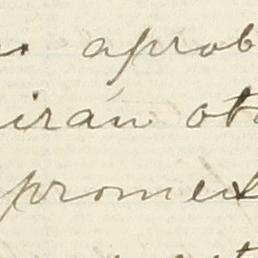 aprob
irán ot
promet